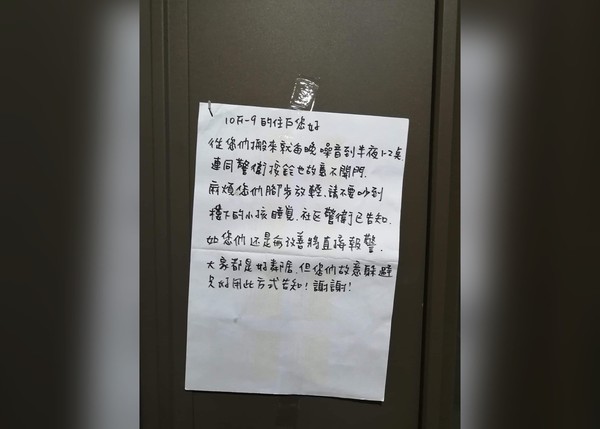 10F-9的住戶您好
從您們搬來就每晚噪音到半夜1-2點
連同警衛按鈴也故意不開門.
麻煩您們腳步放輕.請不要吵到
樓下的小孩睡覺.社區警衛已告知.
如您們还是無改善將直接報警.
大家都是好鄰居,但您們故意躲避
只好用此方式告知!謝謝!